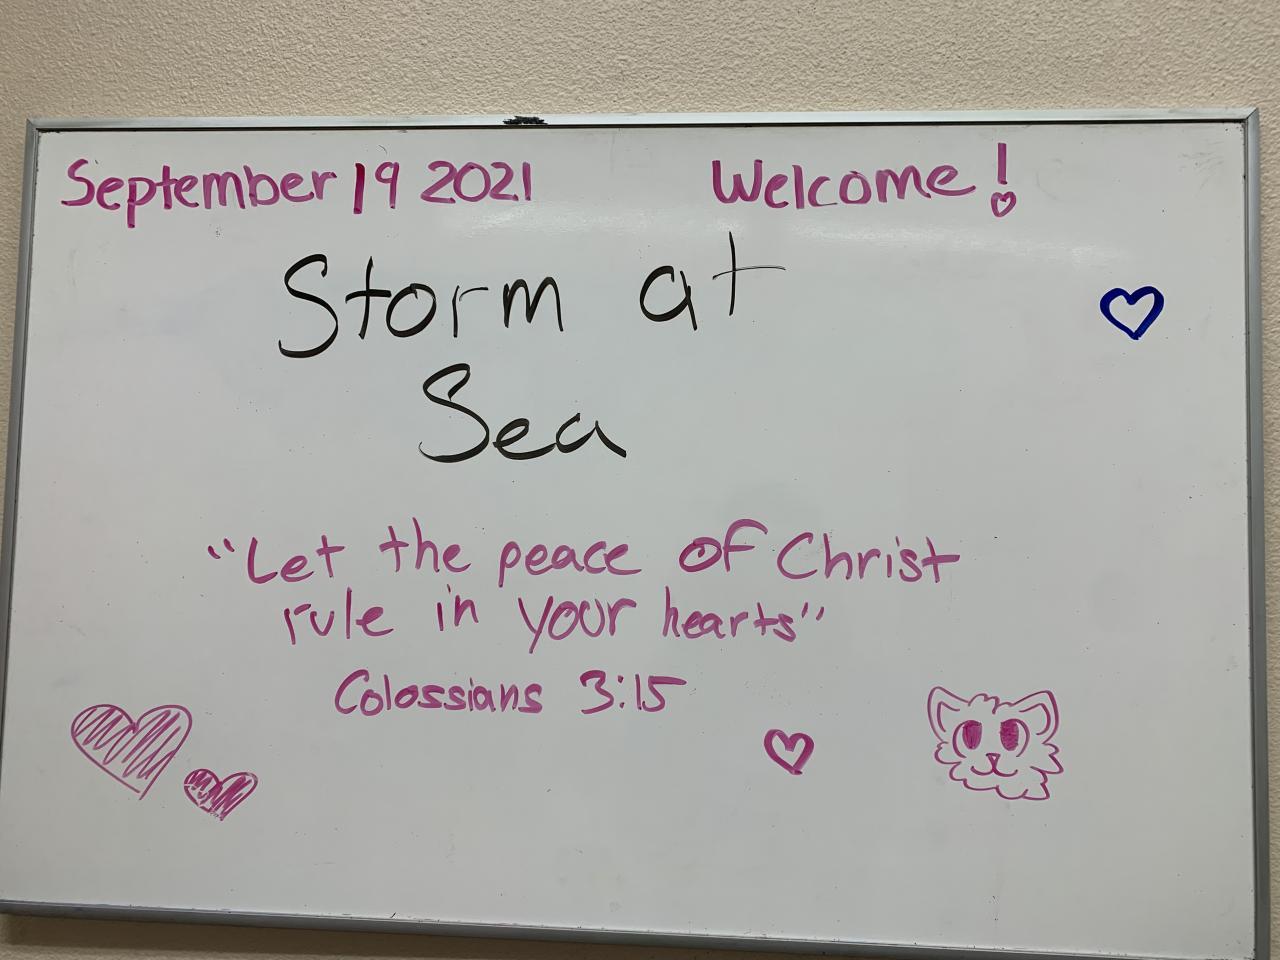 September 19 2021
Welcome!
Storm at
Sea
"Let the peace of Christ
rule in your hearts"
Colossians 3:15